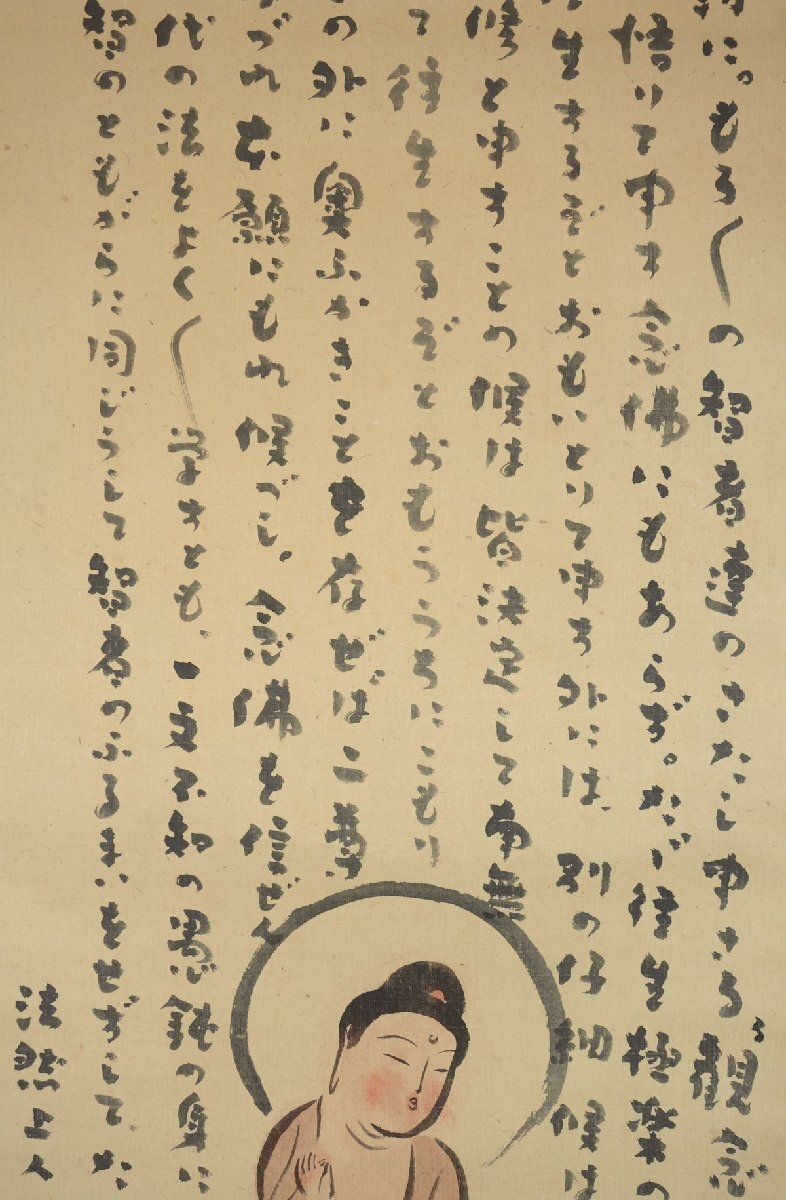 に。もろ〳〵の智者達のさたし申さるる觀念
悟りて申す念佛にもあらず。たゞ往生極楽の
生するぞとおもいとりて申す外には、別の仔細候は
修と申すことの候は皆決定して南無
て往生するぞとおもううちにこもり
の外に奥ふかきことを存ぜば二尊
づれ本願にもれ候べし。念佛を信ぜん
代の法をよく〳〵学すとも、一文不知の愚鈍の身に
智のともがらに同じうして智者のふるまいをせずして、た
法然上人